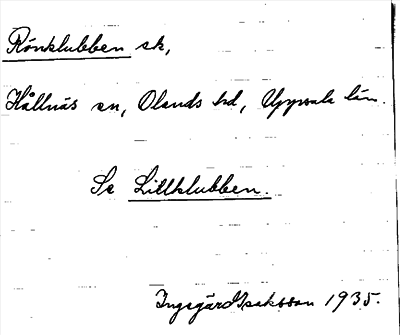 Rönklubben sk,
Hållnäs sn, Olands hd, Uppsala län.
Se Lillklubben.
Ingegärd Isaksson 1935.